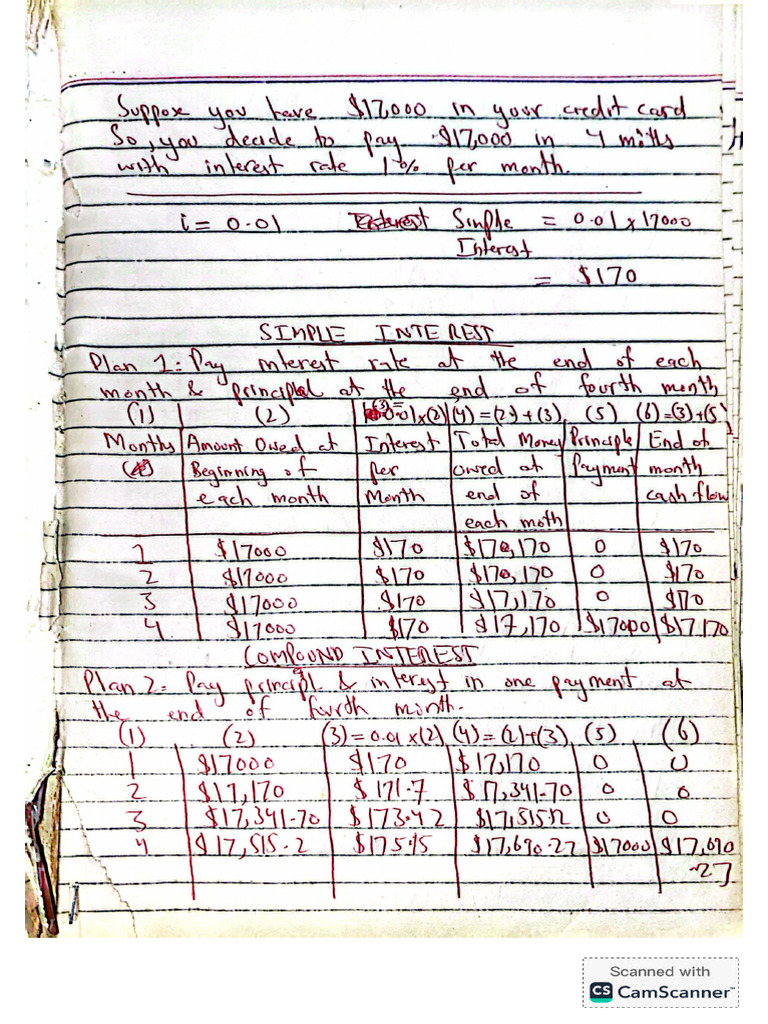 Suppose you have $17,000 in your credit card
So, you decide to pay $17,000 in 4 moths
with interest rate 1% per month.
i = 0.01 Simple = 0.01 x 17000
Interest
= $170
SIMPLE INTEREST
Plan 1: Pay interest rate at the end of each
month & principal at the end of fourth month
(1) (2) (3)=0.01x(2) (4) = (2) + (3) (5) (6) = (3)+(5)
Months Amount Owed at Interest Total Money Principle End of
Beginning of per owed at Payment month
each month Month end of cash flow
each moth
1 $17000 $170 $170,170 0 $170
2 $17000 $170 $170,170 0 $170
3 $17000 $170 $17,170 0 $170
4 $17000 $170 $17,170 $17000 $17,170
COMPOUND INTEREST
Plan 2: Pay principl & interest in one payment at
the end of fourth month.
(1) (2) (3) = 0.01 x(2) (4) = (2)+(3) (5) (6)
1 $17000 $170 $17,170 0 0
2 $17,170 $171.7 $17,341.70 0 0
3 $17,341.70 $173.42 $17,515.12 0 0
4 $17,515.2 $175.15 $17,690.27 $17000 $17,690
.27
Scanned with
CS CamScanner